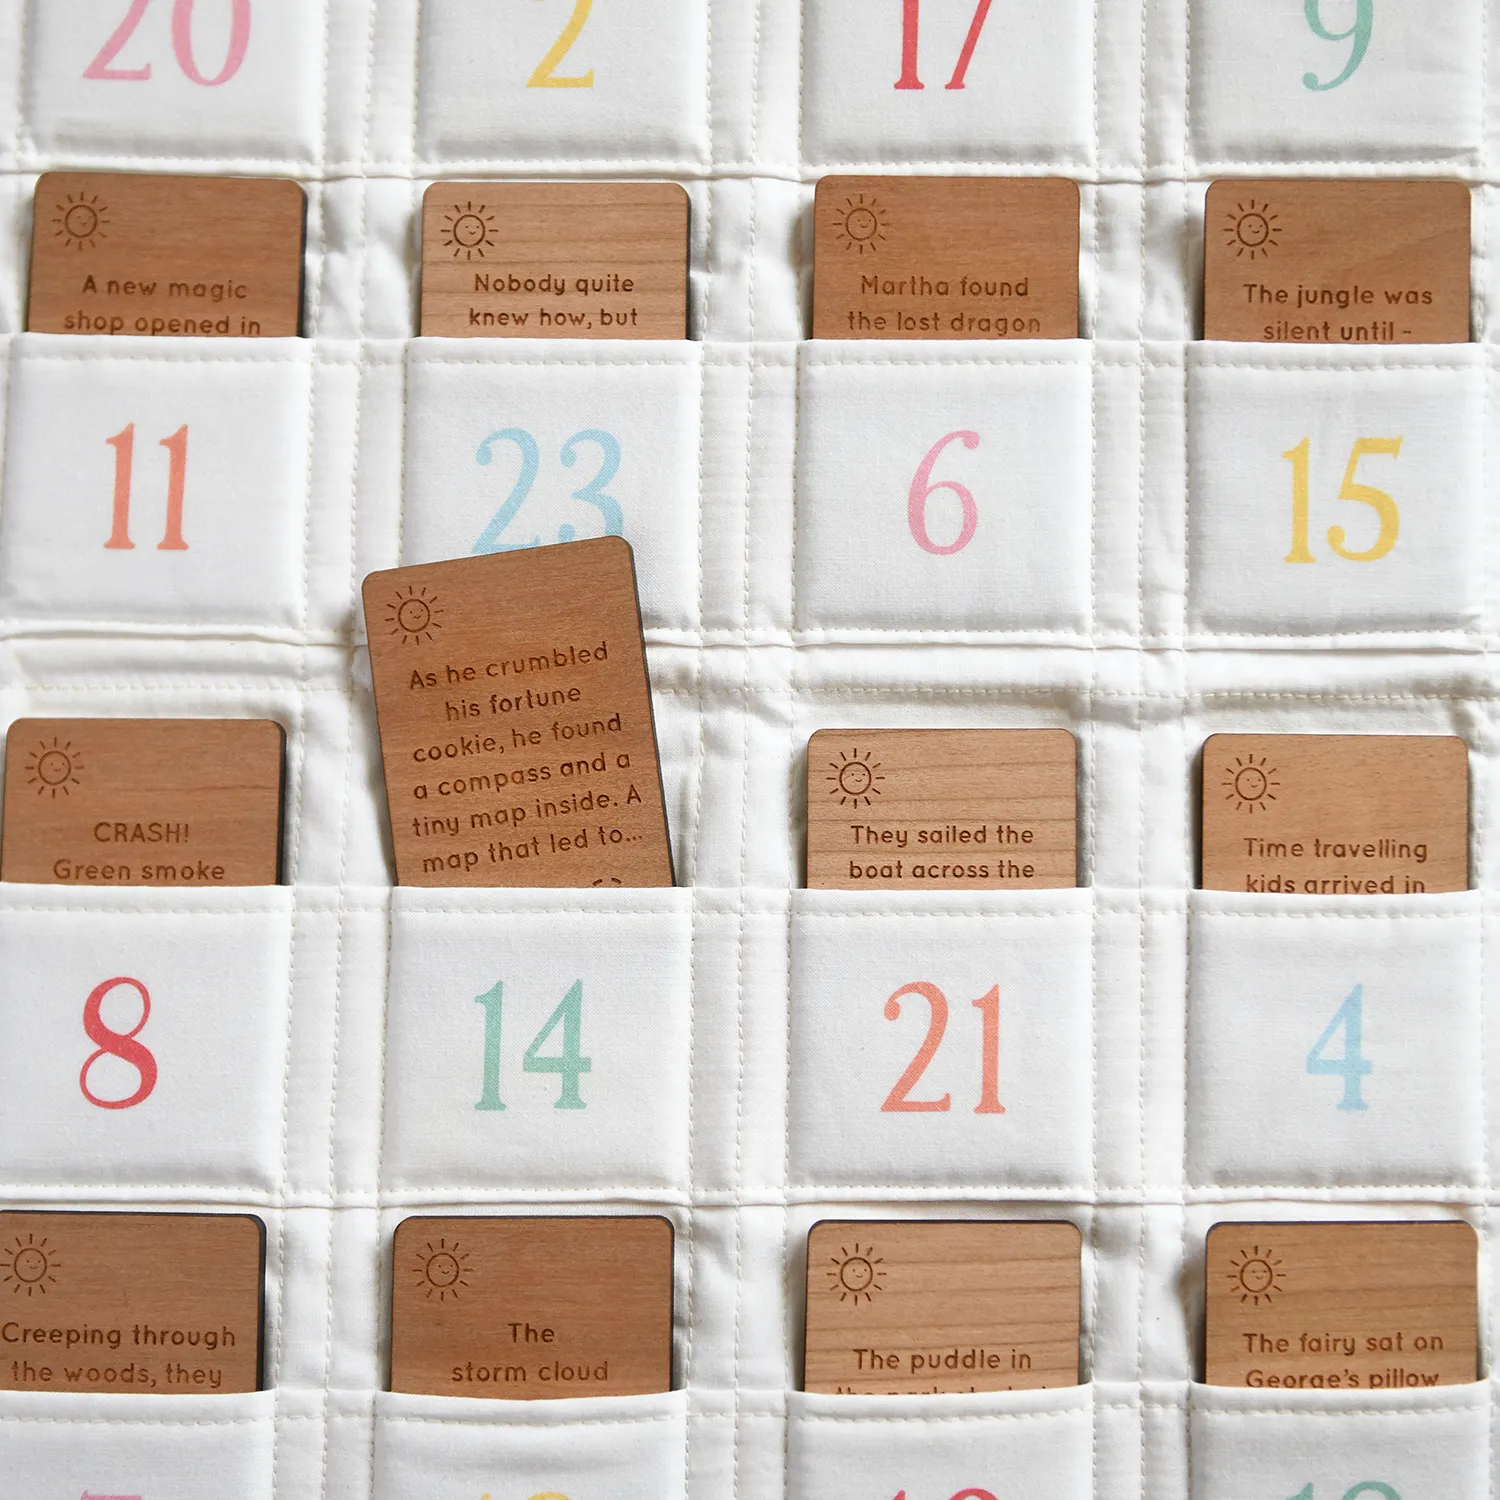 20
2
17
9
A new magic
shop opened in
Nobody quite
knew how, but
Martha found
the lost dragon
The jungle was
silent until -
11
23
6
15
CRASH!
Green smoke
As he crumbled
his fortune
cookie, he found
a compass and a
tiny map inside. A
map that led to...
They sailed the
boat across the
Time travelling
kids arrived in
8
14
21
4
Creeping through
the woods, they
The
storm cloud
The puddle in
The fairy sat on
George's pillow